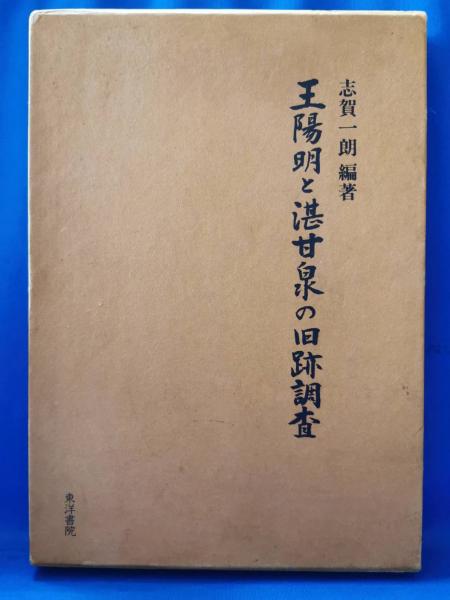 志賀一朗 編著
王陽明と湛甘泉の旧跡調査
東洋書院